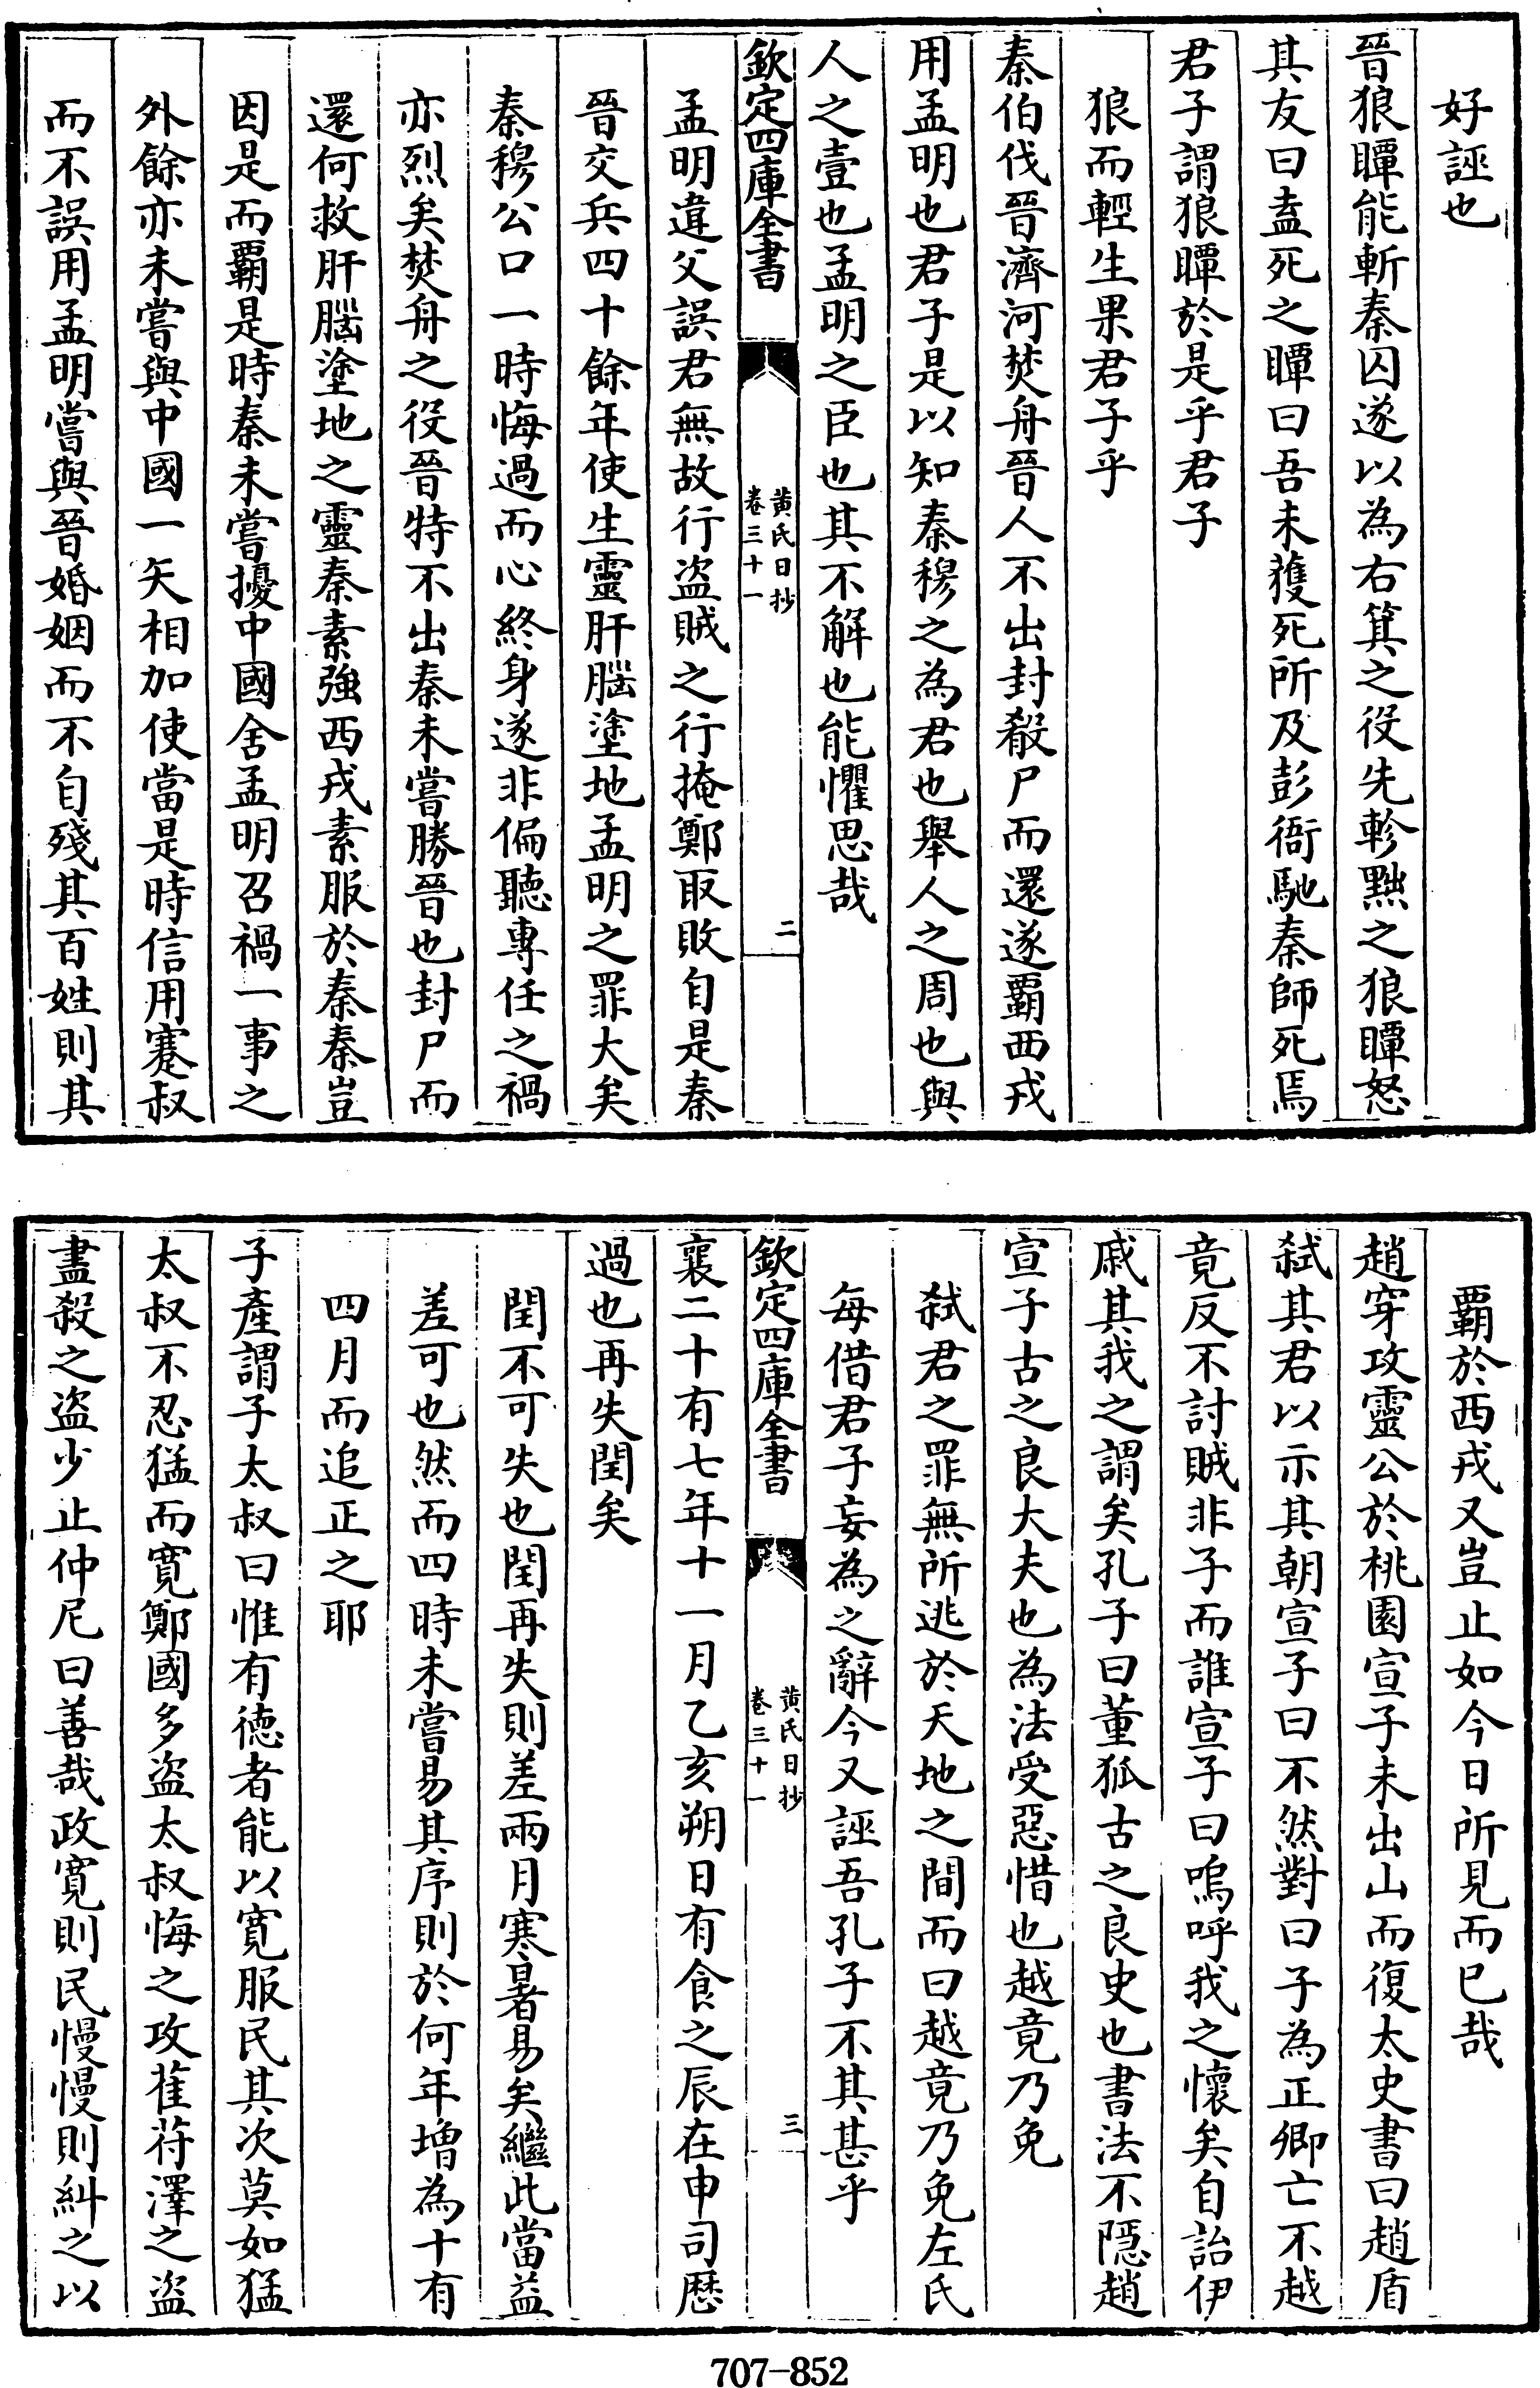 好誣也
晉狼瞫能斬秦囚遂以為右箕之役先軫黜之狼瞫怒
其友曰盍死之瞫曰吾未獲死所及彭衙馳秦師死焉
君子謂狼瞫於是乎君子
狼而輕生果君子乎
秦伯伐晉濟河焚舟晉人不出封殽尸而還遂霸西戎
用孟明也君子是以知秦穆之為君也舉人之周也與
人之壹也孟明之臣也其不解也能懼思哉
欽定四庫全書
黃氏日抄
卷三十一
二
孟明違父誤君無故行盜賊之行掩鄭取敗自是秦
晉交兵四十餘年使生靈肝腦塗地孟明之罪大矣
秦穆公口一時悔過而心終身遂非偏聽專任之禍
亦烈矣焚舟之役晉特不出秦未嘗勝晉也封尸而
還何救肝腦塗地之靈秦素強西戎素服於秦秦豈
因是而霸是時秦未嘗擾中國舍孟明召禍一事之
外餘亦未嘗與中國一矢相加使當是時信用蹇叔
而不誤用孟明嘗與晉婚姻而不自殘其百姓則其
霸於西戎又豈止如今日所見而已哉
趙穿攻靈公於桃園宣子未出山而復太史書曰趙盾
弒其君以示其朝宣子曰不然對曰子為正卿亡不越
竟反不討賊非子而誰宣子曰嗚呼我之懷矣自詒伊
戚其我之謂矣孔子曰董狐古之良史也書法不隱趙
宣子古之良大夫也為法受惡惜也越竟乃免
弒君之罪無所逃於天地之間而曰越竟乃免左氏
每借君子妄為之辭今又誣吾孔子不其甚乎
欽定四庫全書
黃氏日抄
卷三十一
三
襄二十有七年十一月乙亥朔日有食之辰在申司歷
過也再失閏矣
閏不可失也閏再失則差兩月寒暑易矣繼此當益
差可也然而四時未嘗易其序則於何年增為十有
四月而追正之耶
子產謂子太叔曰惟有德者能以寬服民其次莫如猛
太叔不忍猛而寬鄭國多盜太叔悔之攻萑苻澤之盜
盡殺之盜少止仲尼曰善哉政寬則民慢慢則糾之以
707-852